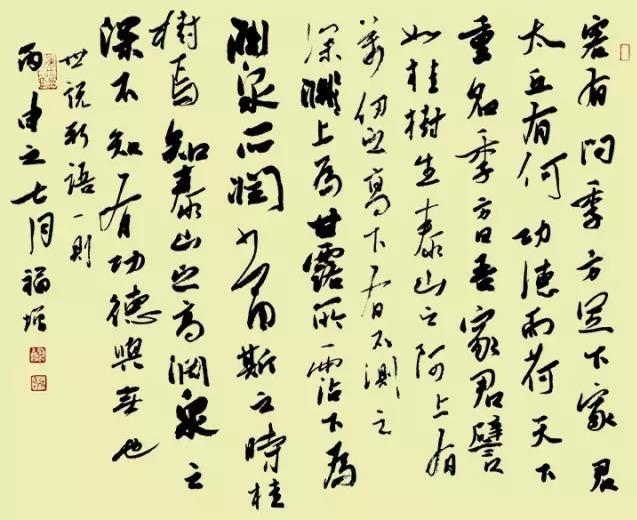 客有问季方足下家君
太丘有何功德而荷天下
重名季方曰吾家君譬
如桂樹生泰山之阿上有
萬仞之高下有不測之
深淵上为甘露所霑下为
淵泉所润当斯之時桂
樹焉知泰山之高渊泉之
深不知有功德與無也
世说新語一則
丙申之七月福